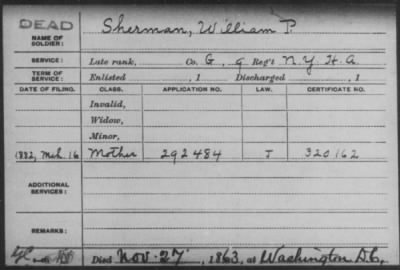 DEAD
NAME OF SOLDIER: Sherman, William P.
SERVICE: Late rank, Co. G, 9 Reg't N.Y.H.A.
TERM OF SERVICE: Enlisted , 1 Discharged , 1
DATE OF FILING. CLASS. APPLICATION NO. LAW. CERTIFICATE NO.
Invalid,
Widow,
Minor,
1882, Mch. 16 Mother 292484 J 320162
ADDITIONAL SERVICES:
REMARKS:
Died Nov. 27, 1863, at Washington D.C,